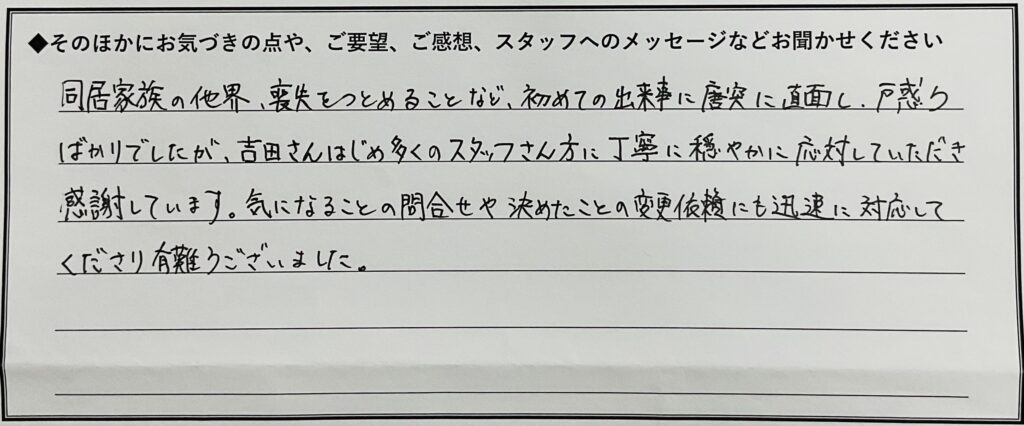 ◆そのほかにお気づきの点や、ご要望、ご感想、スタッフへのメッセージなどお聞かせください
同居家族の他界、喪失をつとめることなど、初めての出来事に唐突に直面し、戸惑う
ばかりでしたが、吉田さんはじめ多くのスタッフさん方に丁寧に穏やかに応対していただき
感謝しています。気になることの問合せや決めたことの変更依頼にも迅速に対応して
くださり有難うございました。